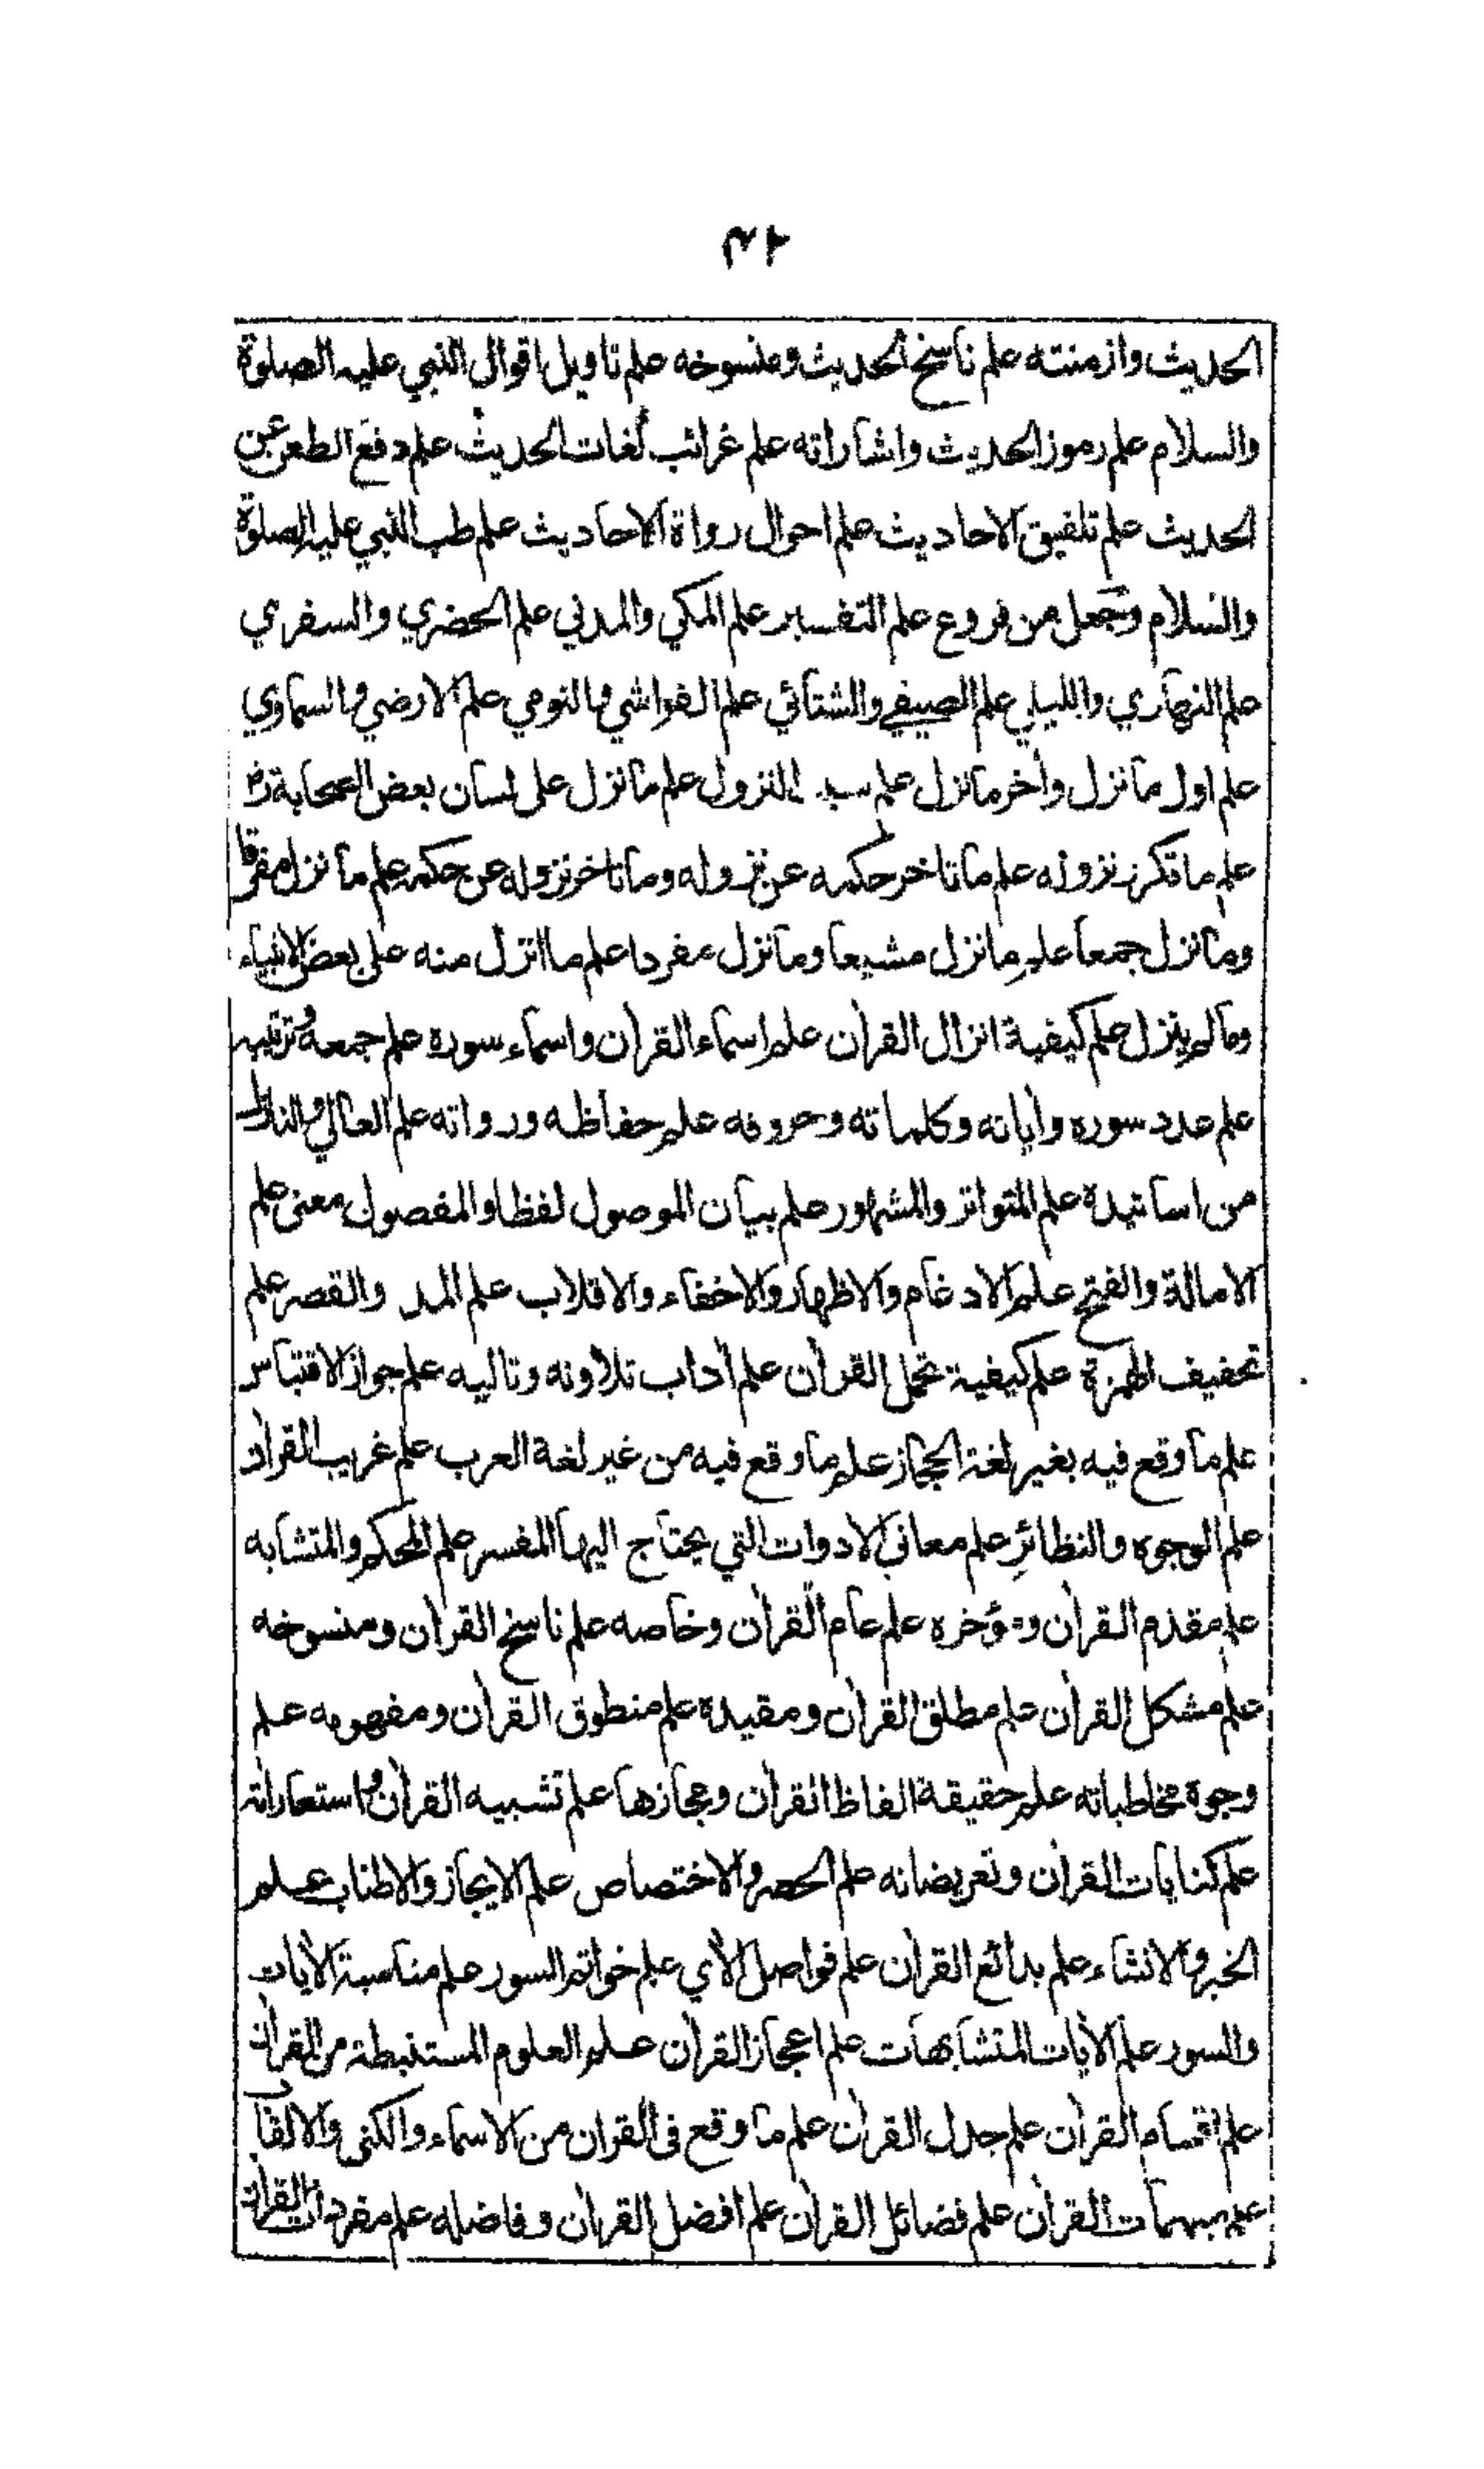 ٤٢
الحديث وازمنته علم ناسخ الحديث ومنسوخه علم تاويل اقوال النبي عليه الصلوة
والسلام علم رموز الحديث واشاراته علم غرائب لغات الحديث علم دفع الطعن عن
الحديث علم تلفيق الاحاديث علم احوال رواة الاحاديث علم طب النبي عليه الصلوة
والسلام وتجعل من فروع علم التفسير علم المكي والمدني علم الحضري والسفري
علم النهاري والليلي علم الصيفي والشتائي علم الفراشي والنومي علم الارضي والسماوي
علم اول ما نزل وآخر ما نزل علم سبب النزول علم ما نزل على لسان بعض الصحابة رض
علم ما تكرر نزوله علم ما تاخر حكمه عن نزوله وما تاخر نزوله عن حكمه علم ما نزل مفرقا
وما نزل جمعا علم ما نزل مشيعا وما نزل مفردا علم ما انزل منه على بعض الانبياء
وما لم ينزل علم كيفية انزال القرآن علم اسماء القرآن واسماء سوره علم جمعه وترتيبه
علم عدد سوره وآياته وكلماته وحروفه علم حفاظه ورواته علم العالي والنازل
من اسانيدة علم المتواتر والمشهور علم بيان الموصول لفظا والمفصول معنى علم
الامالة والفتح علم الادغام والاظهار والاخفاء والاقلاب علم المد والقصر علم
تخفيف الهمزة علم كيفية تحمل القرآن علم آداب تلاوته وتاليه علم جواز الاقتباس
علم ما وقع فيه بغير لغة الحجاز علم ما وقع فيه من غير لغة العرب علم غريب القرآن
علم الوجوه والنظائر علم معاني الادوات التي يحتاج اليها المفسر علم المحكم والمتشابه
علم مقدم القرآن ومؤخره علم عام القرآن وخاصه علم ناسخ القرآن ومنسوخه
علم مشكل القرآن علم مطلق القرآن ومقيدة علم منطوق القرآن ومفهومه علم
وجوه مخاطباته علم حقيقة الفاظ القرآن ومجازها علم تشبيه القرآن واستعاراته
علم كنايات القرآن وتعريضاته علم الحصر والاختصاص علم الايجاز والاطناب علم
الخبر والانشاء علم بدائع القرآن علم فواصل الآي علم خواتم السور علم مناسبة الآيات
والسور علم الآيات المتشابهات علم اعجاز القرآن علم العلوم المستنبطة من القرآن
علم اقسام القرآن علم جدل القرآن علم ما وقع فى القرآن من الاسماء والكنى والالقاب
علم مبهمات القرآن علم فضائل القرآن علم افضل القرآن وفاضله علم مفردات القرآن